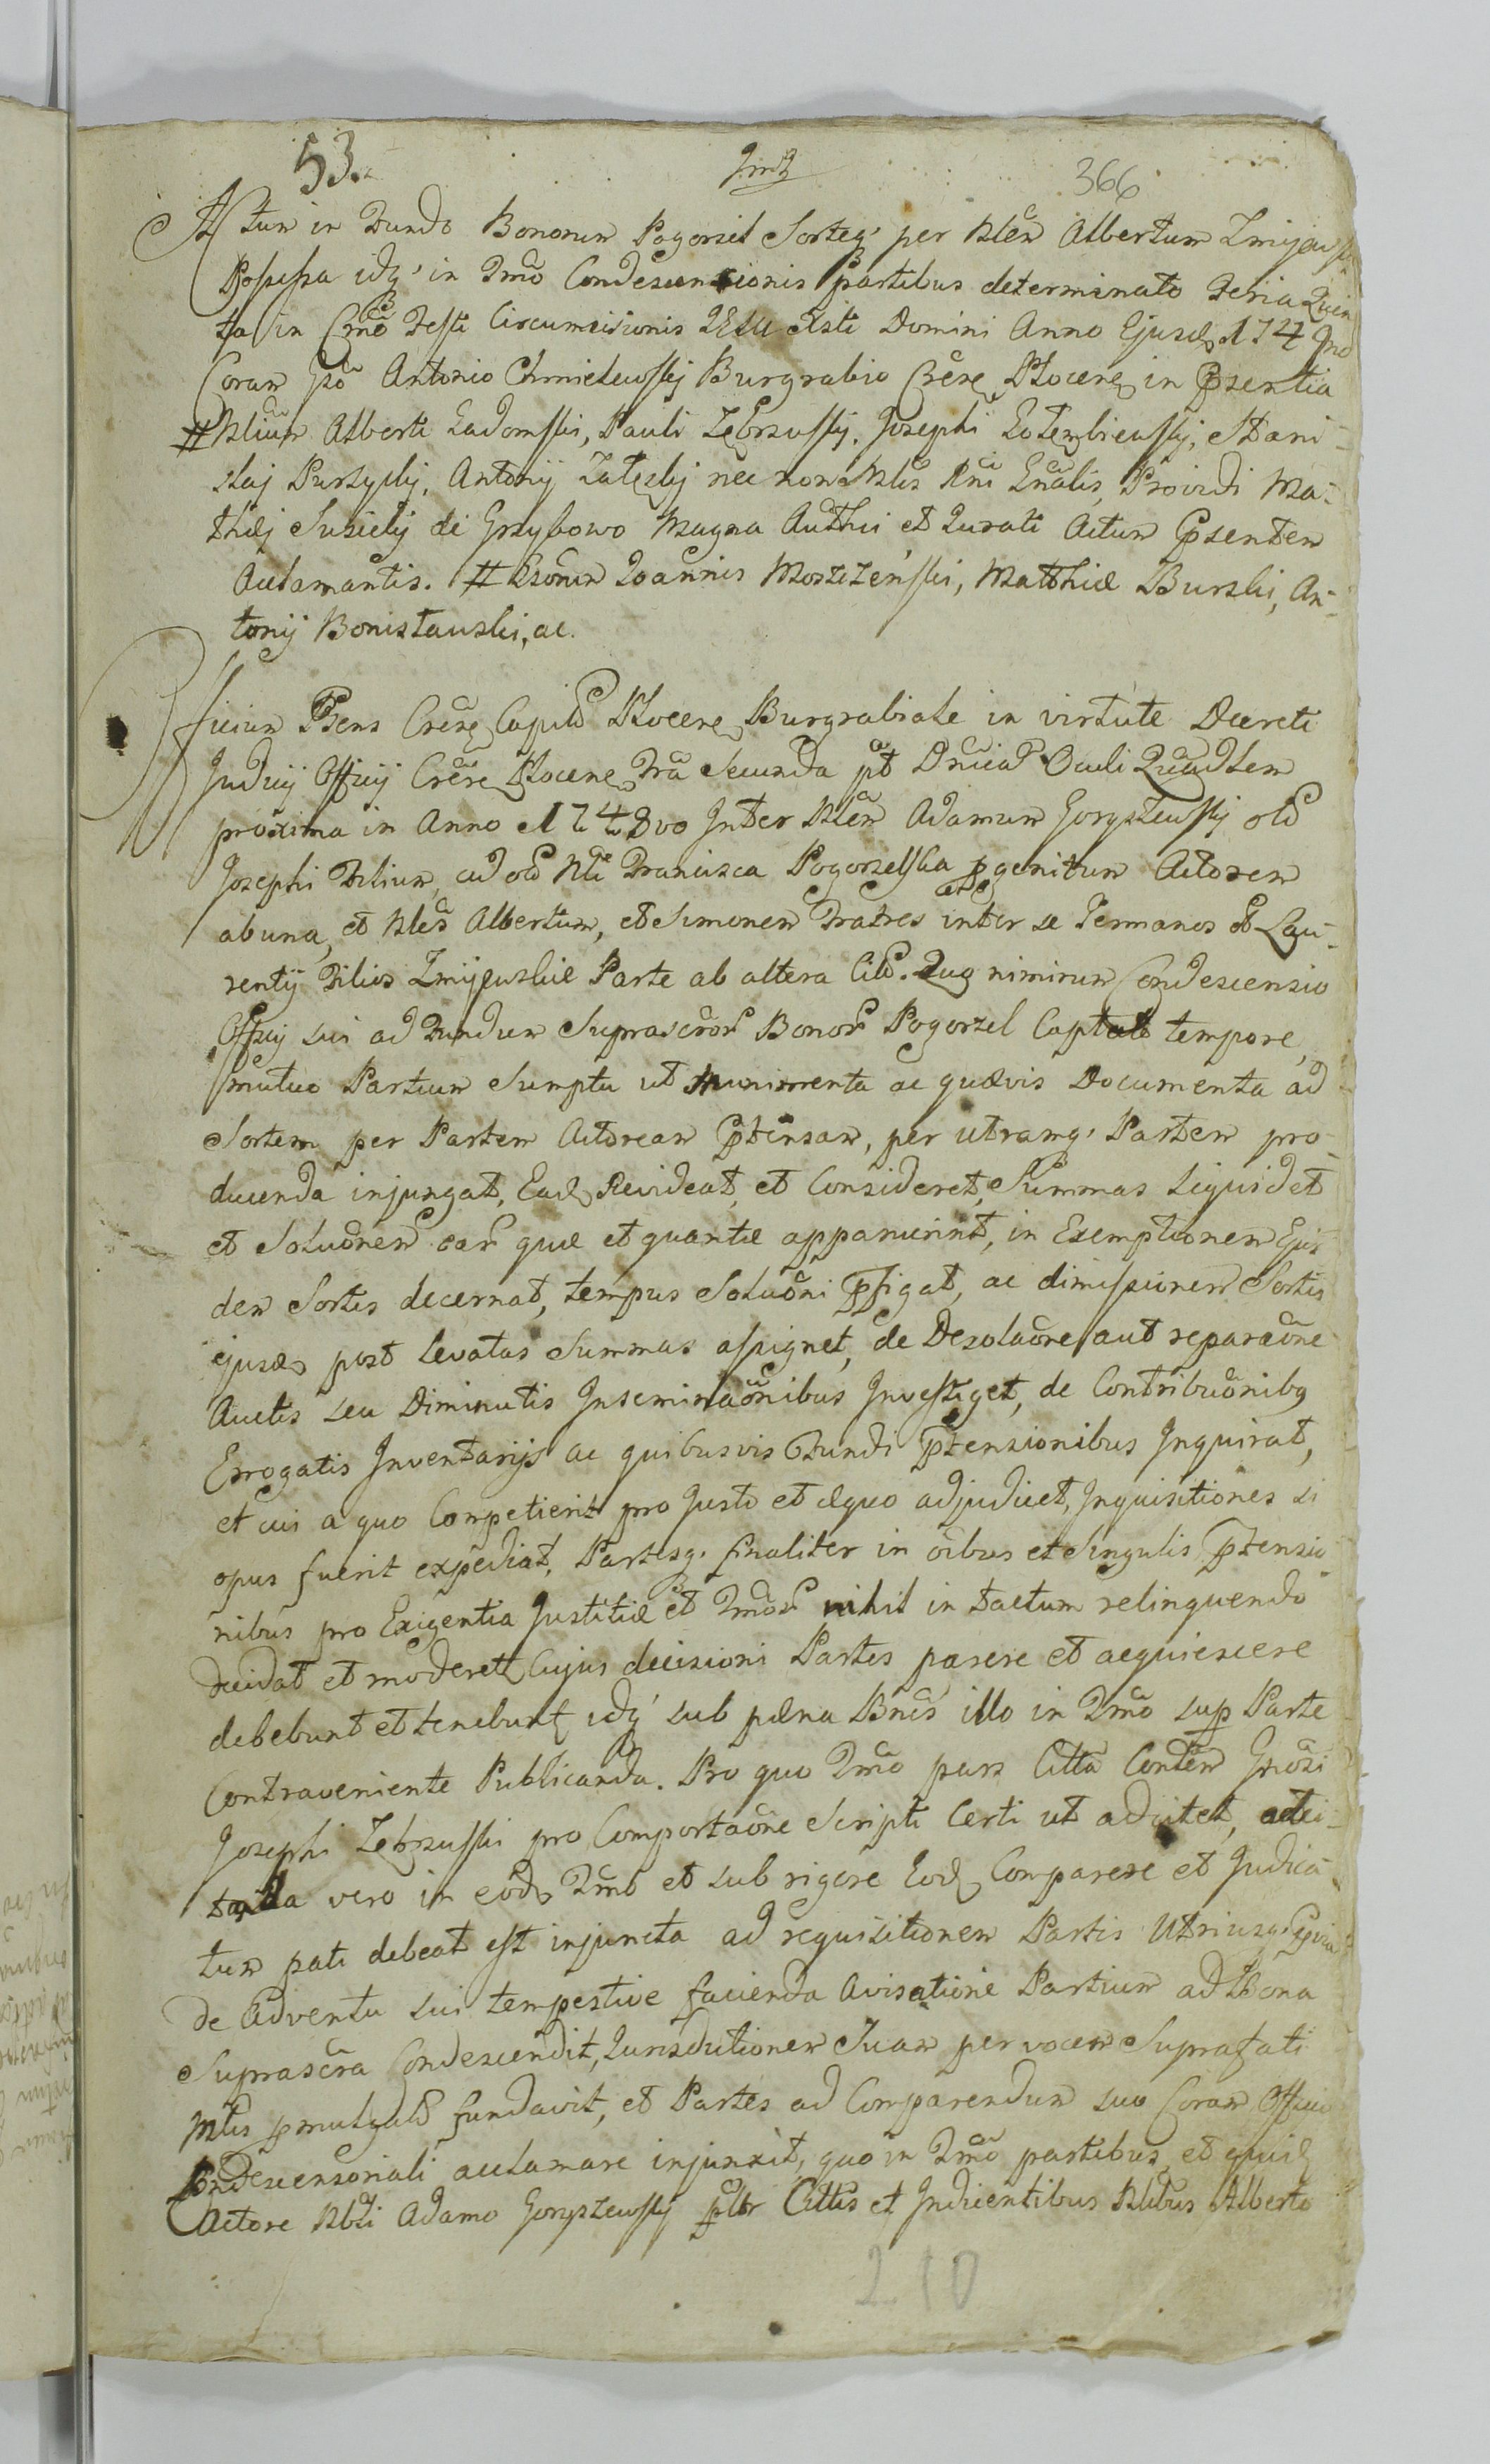 53.
366
Actum in Fundo Bonorum Pogorzel Sorteq' per Nlēm Albertum Zmijewski
Possessa idq' in Tmō Condescensionis partibus determinato Feria Quin
ta in Crnō Festi Circumcisionis IESU Xsti Domini Anno Ejusd 174
Coram Antonio Chmielewskj Burgrabio Crēñ Ploceñ in Pñsentia
# Nlium Alberti Ladomski, Pauli Zebrzuskj, Josephi Gotembiewskj, Stani-
slaj Purzyckj, Antonij Zateskj nec non Mlis Rñi Gñalis, Providi Ma-
thæj Susickj de Grzybowo Magna Authci et Jurati Actum Pñsentem
Acclamantis. # Gsorum Joannis Moszczenski, Matthiæ Burski, An-
tonij Bonislawski, ac.
Officium Pñsens Crēñ Capitle Ploceñ Burgrabiale in virtute Decreti
Judicij Officij Crēñ Ploceñ Fria Secunda pt Dñicā Oculi Quadlem
proxima in Anno 174 vo Inter Nlēm Adamum Goryszewskj olē
Josephi Filium, ad olē Nli Francisca Pogorzelska pgenitum Actorem
ab una, et Nles Albertum, et Simonem Fratres inter se Germanos olē Lau-
rentij Filios Zmijewskie Parte ab altera Cit. Quo nimirum Condescensio
Officij sui ad Fundum Suprascror Bonor Pogorzel Captato tempore,
mutuo Partium Sumptu ut Munimenta ac quævis Documenta ad
Sortem per Partem Actoream Ptensam, per utramq' Partem pro-
ducenda injungat, Ead Revideat, et Consideret, Summas liquidet
et Solucionem ear quæ et quantæ apparuerint, in Exemptionem Ejus
dem Sortis decernat, tempus Soluōni Pfigat, ac dimissionem Sortis
ejusd post levatas Summas assignet, de Desolacōne aut reparacōne
Auctis seu Diminutis Inseminacōnibus Investiget, de Contribucōnibq
Errogatis Inventarijs ac quibusvis Fundi Ptensionibus Inquirat,
et cui a quo Competierit pro Justo et æquo adjudicet, Inquisitiones si
opus fuerit expediat, Partesq' finaliter in oibus et Singulis Ptensio
nibus pro Exigentia Justitiæ et Tmor nihil intactum relinquendo
decidat et moderet Cujus decisioni Partes parere et acquiescere
debebunt et tenebunt idq' sub pæna Bñis illo in Tmo sup Parte
Contraveniente Publicanda. Pro quo Tmo pars Citta Contēm Gñosi
Josephi Zebrzuski pro Comportacōne Scripti Certi ut adcitet, adci-
tata vero in eod Tmo et sub rigore Eod Comparere et Judica-
tum pati debeat est injuncta ad requisitionem Partis Utriusq'
de Adventu sui tempestive facienda Avisatione Partium ad Bona
Suprascra Condescendit, Jurisdictionem Suam per vocem Suprafati
Mlis pmulgatā fundavit, et Partes ad Comparendum suo Coram Officio
Condescensoriali acclamare injunxit, quo in Tmo partibus, et quid
Actore Nbli Adamo Goryszewskj Cittis et Indicentibus Nlibus Alberto
210